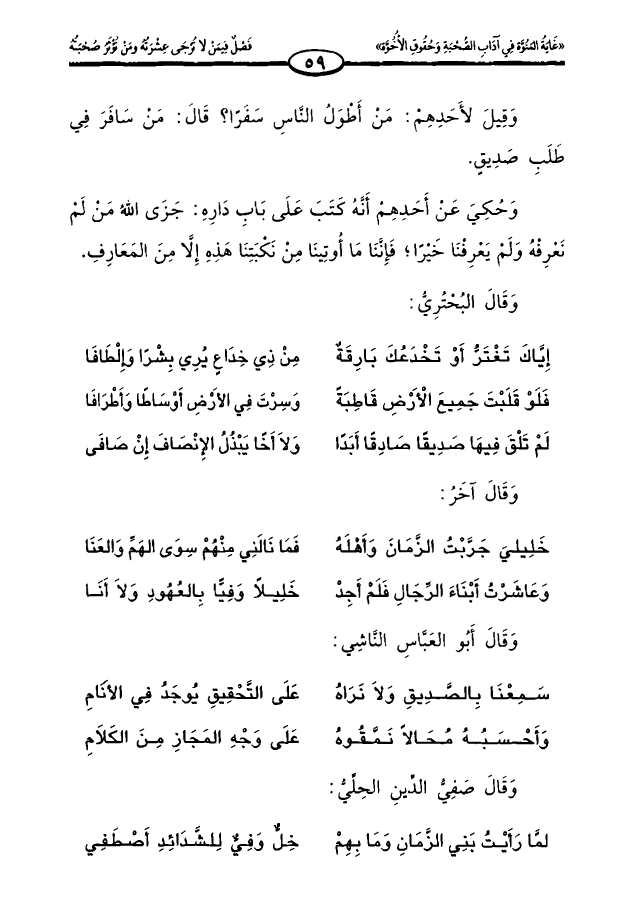 «غَايَةُ المَنُوَّة فِي آدَابِ الصُّحْبَةِ وَحُقُوقِ الأُخُوَّة» فَصْلٌ فِيمَنْ لَا تُرْجَى عِشْرَتُهُ ومَنْ تُؤْثَرُ صُحْبَتُهُ
٥٩
وَقِيلَ لأَحَدِهِمْ: مَنْ أَطْوَلُ النَّاسِ سَفَرًا؟ قَالَ: مَنْ سَافَرَ فِي
طَلَبِ صَدِيقٍ.
وَحُكِيَ عَنْ أَحَدِهِمْ أَنَّهُ كَتَبَ عَلَى بَابِ دَارِهِ: جَزَى اللهُ مَنْ لَمْ
نَعْرِفْهُ وَلَمْ يَعْرِفْنَا خَيْرًا؛ فَإِنَّنَا مَا أُوتِينَا مِنْ نَكْبَتِنَا هَذِهِ إِلَّا مِنَ المَعَارِفِ.
وَقَالَ البُحْتُرِيُّ:
إِيَّاكَ تَغْتَرُّ أَوْ تَخْدَعُكَ بَارِقَةٌ مِنْ ذِي خِدَاعٍ يُرِي بِشْرًا وَإِلْطَافَا
فَلَوْ قَلَبْتَ جَمِيعَ الْأَرْضِ قَاطِبَةً وَسِرْتَ فِي الأَرْضِ أَوْسَاطًا وَأَطْرَافَا
لَمْ تَلْقَ فِيهَا صَدِيقًا صَادِقًا أَبَدًا وَلاَ أَخًا يَبْذُلُ الإِنْصَافَ إِنْ صَافَى
وَقَالَ آخَرُ:
خَلِيلَيَّ جَرَّبْتُ الزَّمَانَ وَأَهْلَهُ فَمَا نَالَنِي مِنْهُمْ سِوَى الهَمِّ وَالعَنَا
وَعَاشَرْتُ أَبْنَاءَ الرِّجَالِ فَلَمْ أَجِدْ خَلِيلاً وَفِيًّا بِالعُهُودِ وَلاَ أَنَا
وَقَالَ أَبُو العَبَّاسِ النَّاشِي:
سَمِعْنَا بِالصَّدِيقِ وَلاَ نَرَاهُ عَلَى التَّحْقِيقِ يُوجَدُ فِي الأَنَامِ
وَأَحْسَبُهُ مُحَالاً نَمَّقُوهُ عَلَى وَجْهِ المَجَازِ مِنَ الكَلَامِ
وَقَالَ صَفِيُّ الدِّينِ الحِلِّيُّ:
لمَّا رَأَيْتُ بَنِي الزَّمَانِ وَمَا بِهِمْ خِلٌّ وَفِيٌّ لِلشَّدَائِدِ أَصْطَفِي